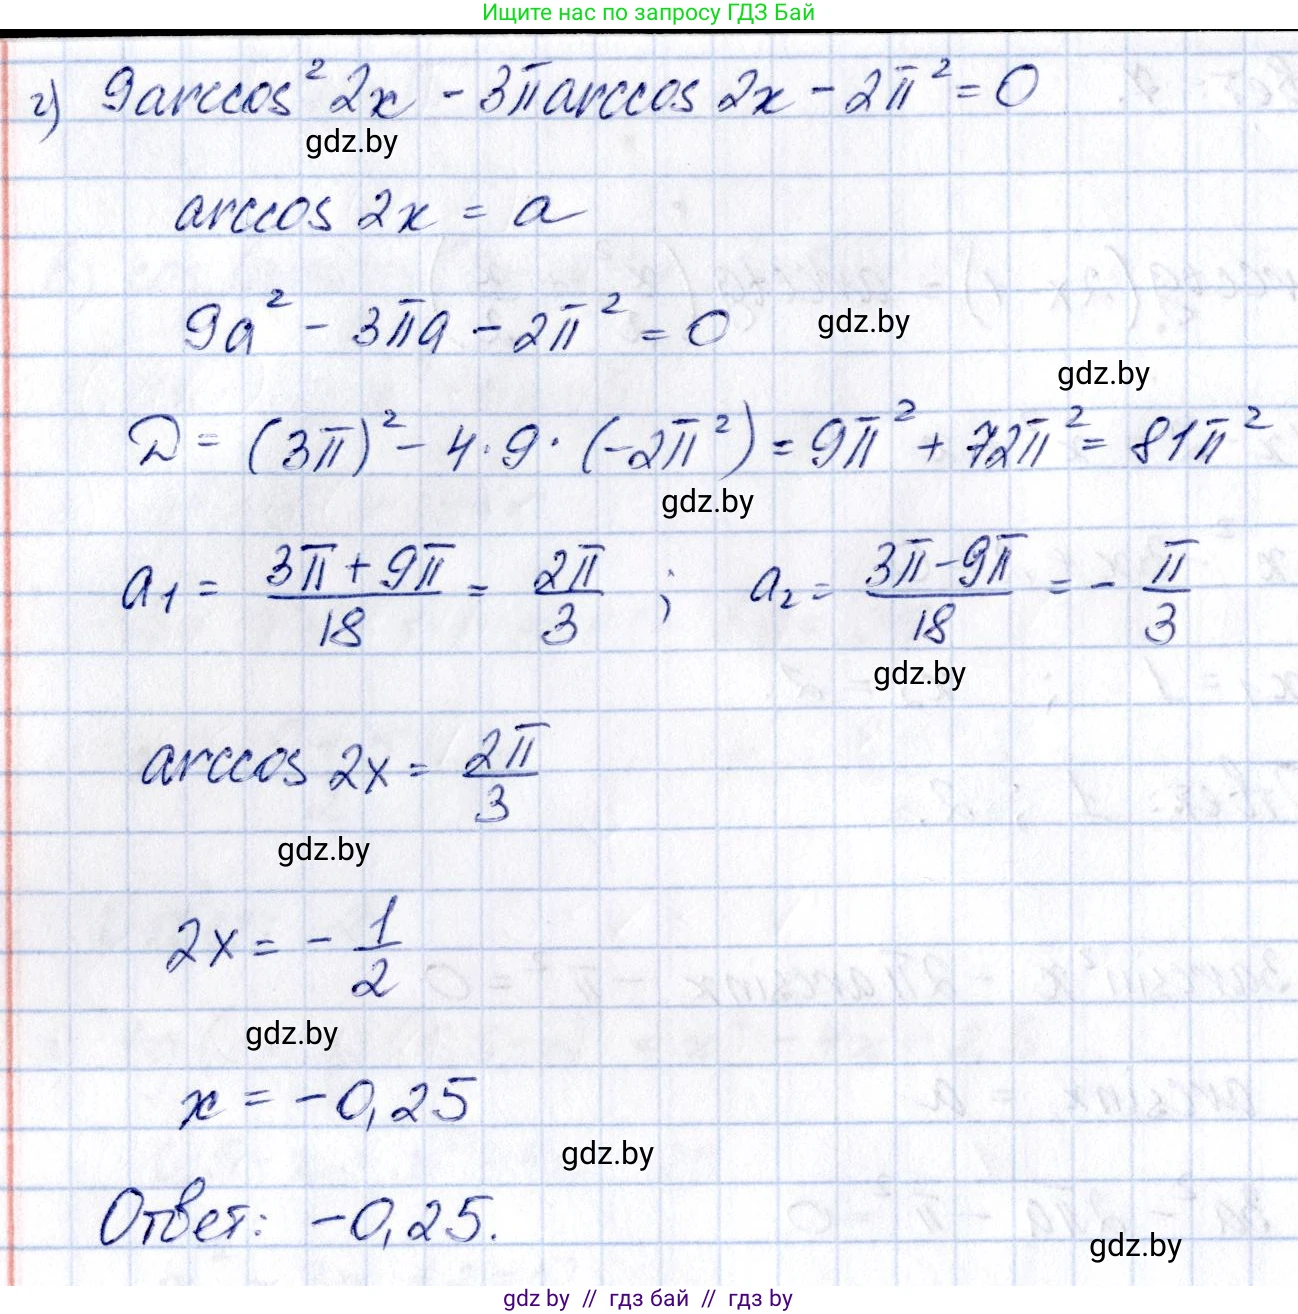 Ищите нас по запросу ГДЗ Бай
г) 9arccos² 2x - 3π arccos 2x - 2π² = 0
gdz.by
arccos 2x = a
9a² - 3πa - 2π² = 0
gdz.by
gdz.by
D = (3π)² - 4·9·(-2π²) = 9π² + 72π² = 81π²
gdz.by
a₁ = (3π + 9π)/18 = 2π/3 ; a₂ = (3π - 9π)/18 = - π/3
gdz.by
arccos 2x = 2π/3
gdz.by
2x = - 1/2
gdz.by
x = -0,25
gdz.by
Ответ: -0,25.
gdz.by
gdz.by // гдз бай // гдз by